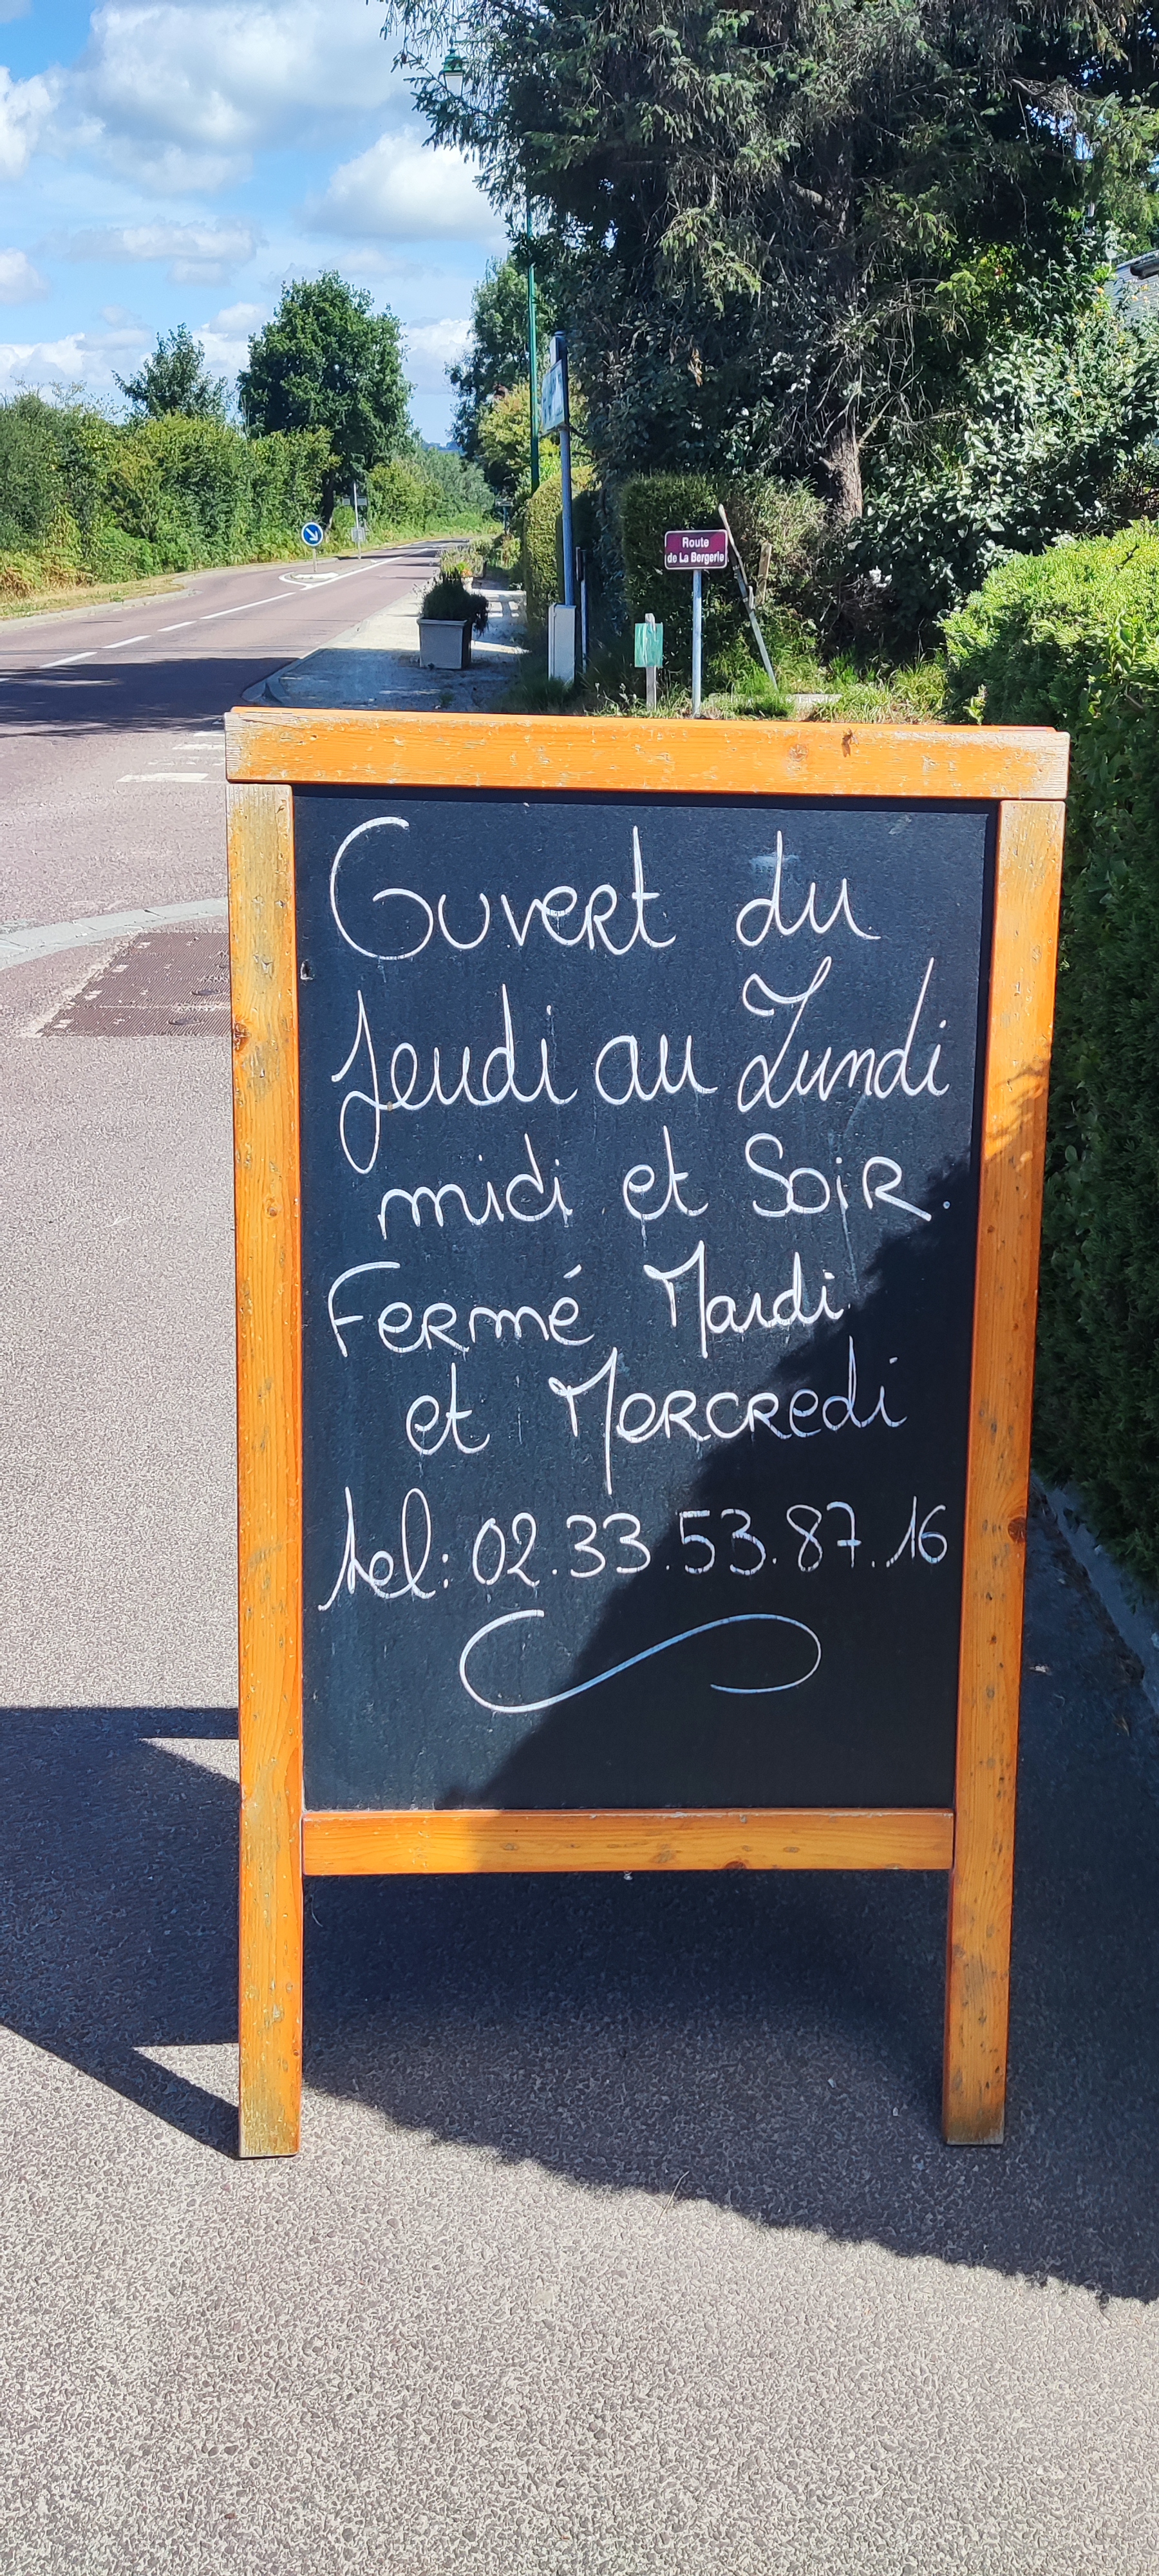 Route
de La Bergerie
Ouvert du
Jeudi au Lundi
midi et Soir.
Fermé Mardi
et Mercredi
tel: 02.33.53.87.16